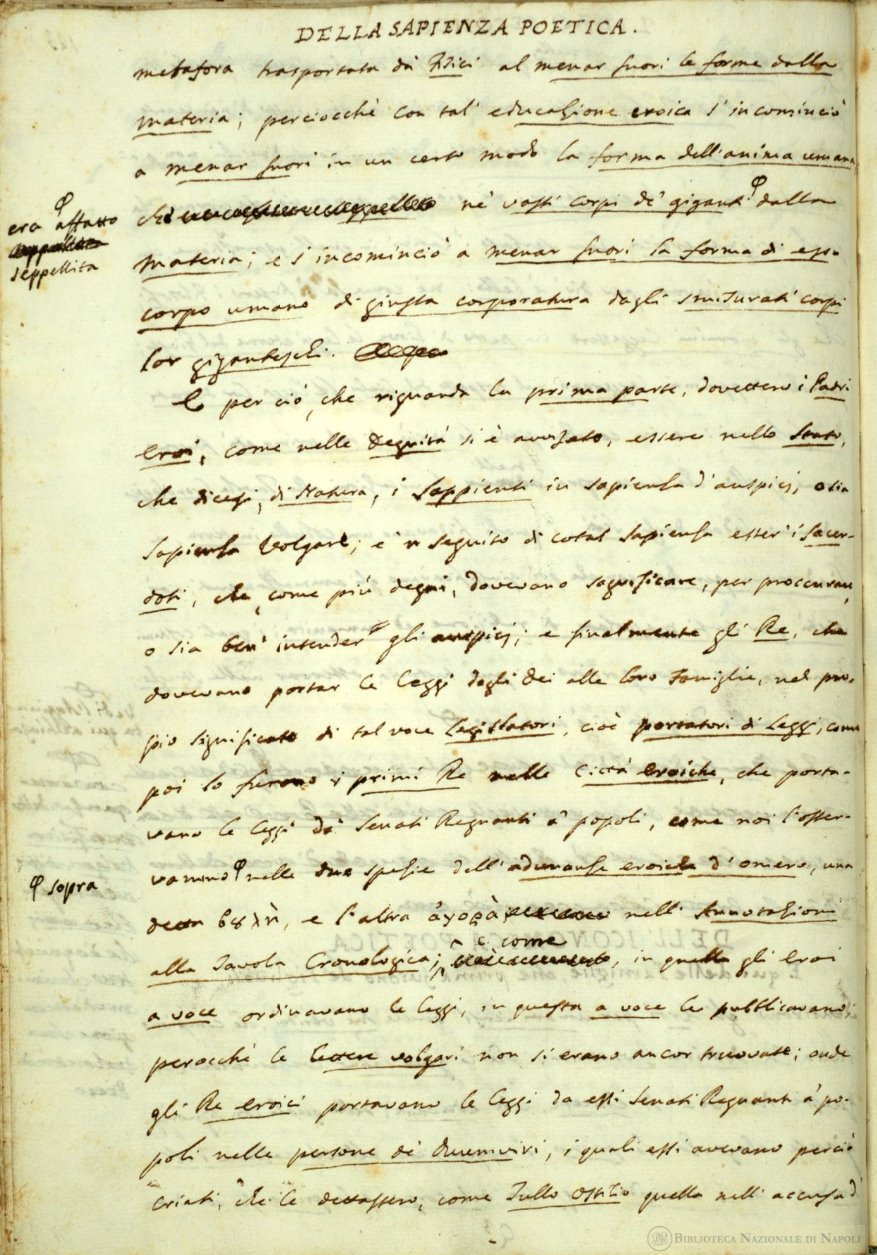 DELLA SAPIENZA POETICA.
metafora trasportata da' Fisici al menar fuori le forme dalla
materia; perciocchè con tal' educazione eroica s'incominciò
a menar fuori in un certo modo la forma dell'anima umana,
che ne' vasti corpi de' giganti φ dalla
φ
era affatto
seppellita
materia; e s'incominciò a menar fuori la forma di esso
corpo umano di giusta corporatura dagli smisurati corpi
lor giganteschi.
E per ciò, che riguarda la prima parte, dovettero i Padri
Eroi, come nelle Degnità si è avvisato, essere nello Stato,
che dicesi, di Natura, i Sappienti in sapienza d'auspicj, o sia
Sapienza Volgare; e 'n seguito di cotal Sapienza esser' i Sacer-
doti, che, come più degni, dovevano sagrificare, per proccurare,
o sia ben' intender gli auspicj; e finalmente gli Re, che
dovevano portar le leggi dagli Dei alle loro Famiglie, nel pro-
pio significato di tal voce Legislatori, cioè portatori di Leggi, come
poi lo furono i primi Re nelle Città eroiche, che porta-
vano le leggi da' Senati Regnanti a' popoli, come noi l'osser-
vammo φ nelle due spezie dell'adunanze eroiche d'Omero, una
φ sopra
detta βȣλὴ, e l'altra ἀγορὰ nell' Annotazioni
alla Tavola Cronologica; e come, in quella gli Eroi
a voce ordinavano le leggi, in questa a voce le pubblicavano;
perocchè le lettere volgari non si erano ancor truovate; onde
gli Re eroici portavano le leggi da essi Senati Regnanti a' po-
poli nelle persone de' Duumviri, i quali essi avevano perciò
criati, che le dettassero, come Tullo Ostilio quella nell' accusa d'
BIBLIOTECA NAZIONALE DI NAPOLI